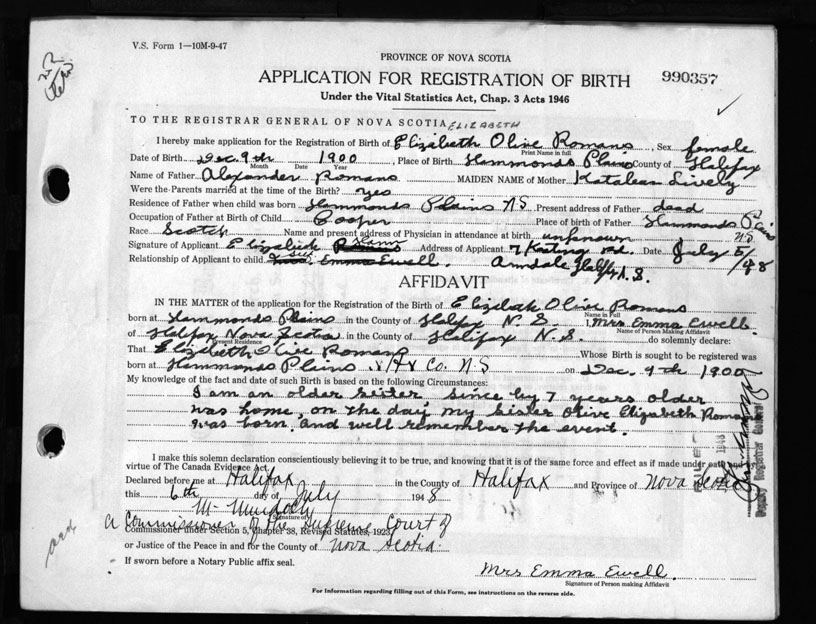 V.S. Form 1—10M-9-47
PROVINCE OF NOVA SCOTIA
APPLICATION FOR REGISTRATION OF BIRTH
990357
Under the Vital Statistics Act, Chap. 3 Acts 1946
TO THE REGISTRAR GENERAL OF NOVA SCOTIA
ELIZABETH
I hereby make application for the Registration of Birth of Elizabeth Olive Romans, Sex female
Print Name in full
Date of Birth Dec 9th 1900, Place of Birth Hammonds Plains County of Halifax
Month Date Year
Name of Father Alexander Romans MAIDEN NAME of Mother Katalean Lively
Were the Parents married at the time of the Birth? yes
Residence of Father when child was born Hammonds Plains NS Present address of Father dead
Occupation of Father at Birth of Child Cooper Place of birth of Father Hammonds Plains
Race Scotch Name and present address of Physician in attendance at birth unknown NS
Signature of Applicant Elizabeth Romans Address of Applicant 7 Rd. Date July 5/48
Relationship of Applicant to child Emma Ewell. Armdale Halifax N.S.
AFFIDAVIT
IN THE MATTER of the application for the Registration of the Birth of Elizabeth Olive Romans
Name in Full
born at Hammonds Plains in the County of Halifax N. S I, Mrs Emma Ewell.
Name of Person Making Affidavit
of Halifax Nova Scotia in the County of Halifax N. S. do solemnly declare:
Present Residence
That Elizabeth Olive Romans Whose Birth is sought to be registered was
born at Hammonds Plains Hfx Co. N S on Dec. 9th 1900
My knowledge of the fact and date of such Birth is based on the following Circumstances:
I am an older sister since by 7 years older
was home, on the day my sister Olive Elizabeth Romans
was born. and well remember the event.
I make this solemn declaration conscientiously believing it to be true, and knowing that it is of the same force and effect as if made under oath and by
virtue of The Canada Evidence Act.
Declared before me at Halifax in the County of Halifax and Province of Nova Scotia
this 6th day of July 1948
M. Murdoch
Signature of
a Commissioner of the Supreme Court of
Commissioner under Section 5, Chapter 38, Revised Statutes, 1923
or Justice of the Peace in and for the County of Nova Scotia.
If sworn before a Notary Public affix seal.
Mrs Emma Ewell.
Signature of Person making Affidavit
For Information regarding filling out of this Form, see instructions on the reverse side.
FILED
1948
Deputy Registrar General